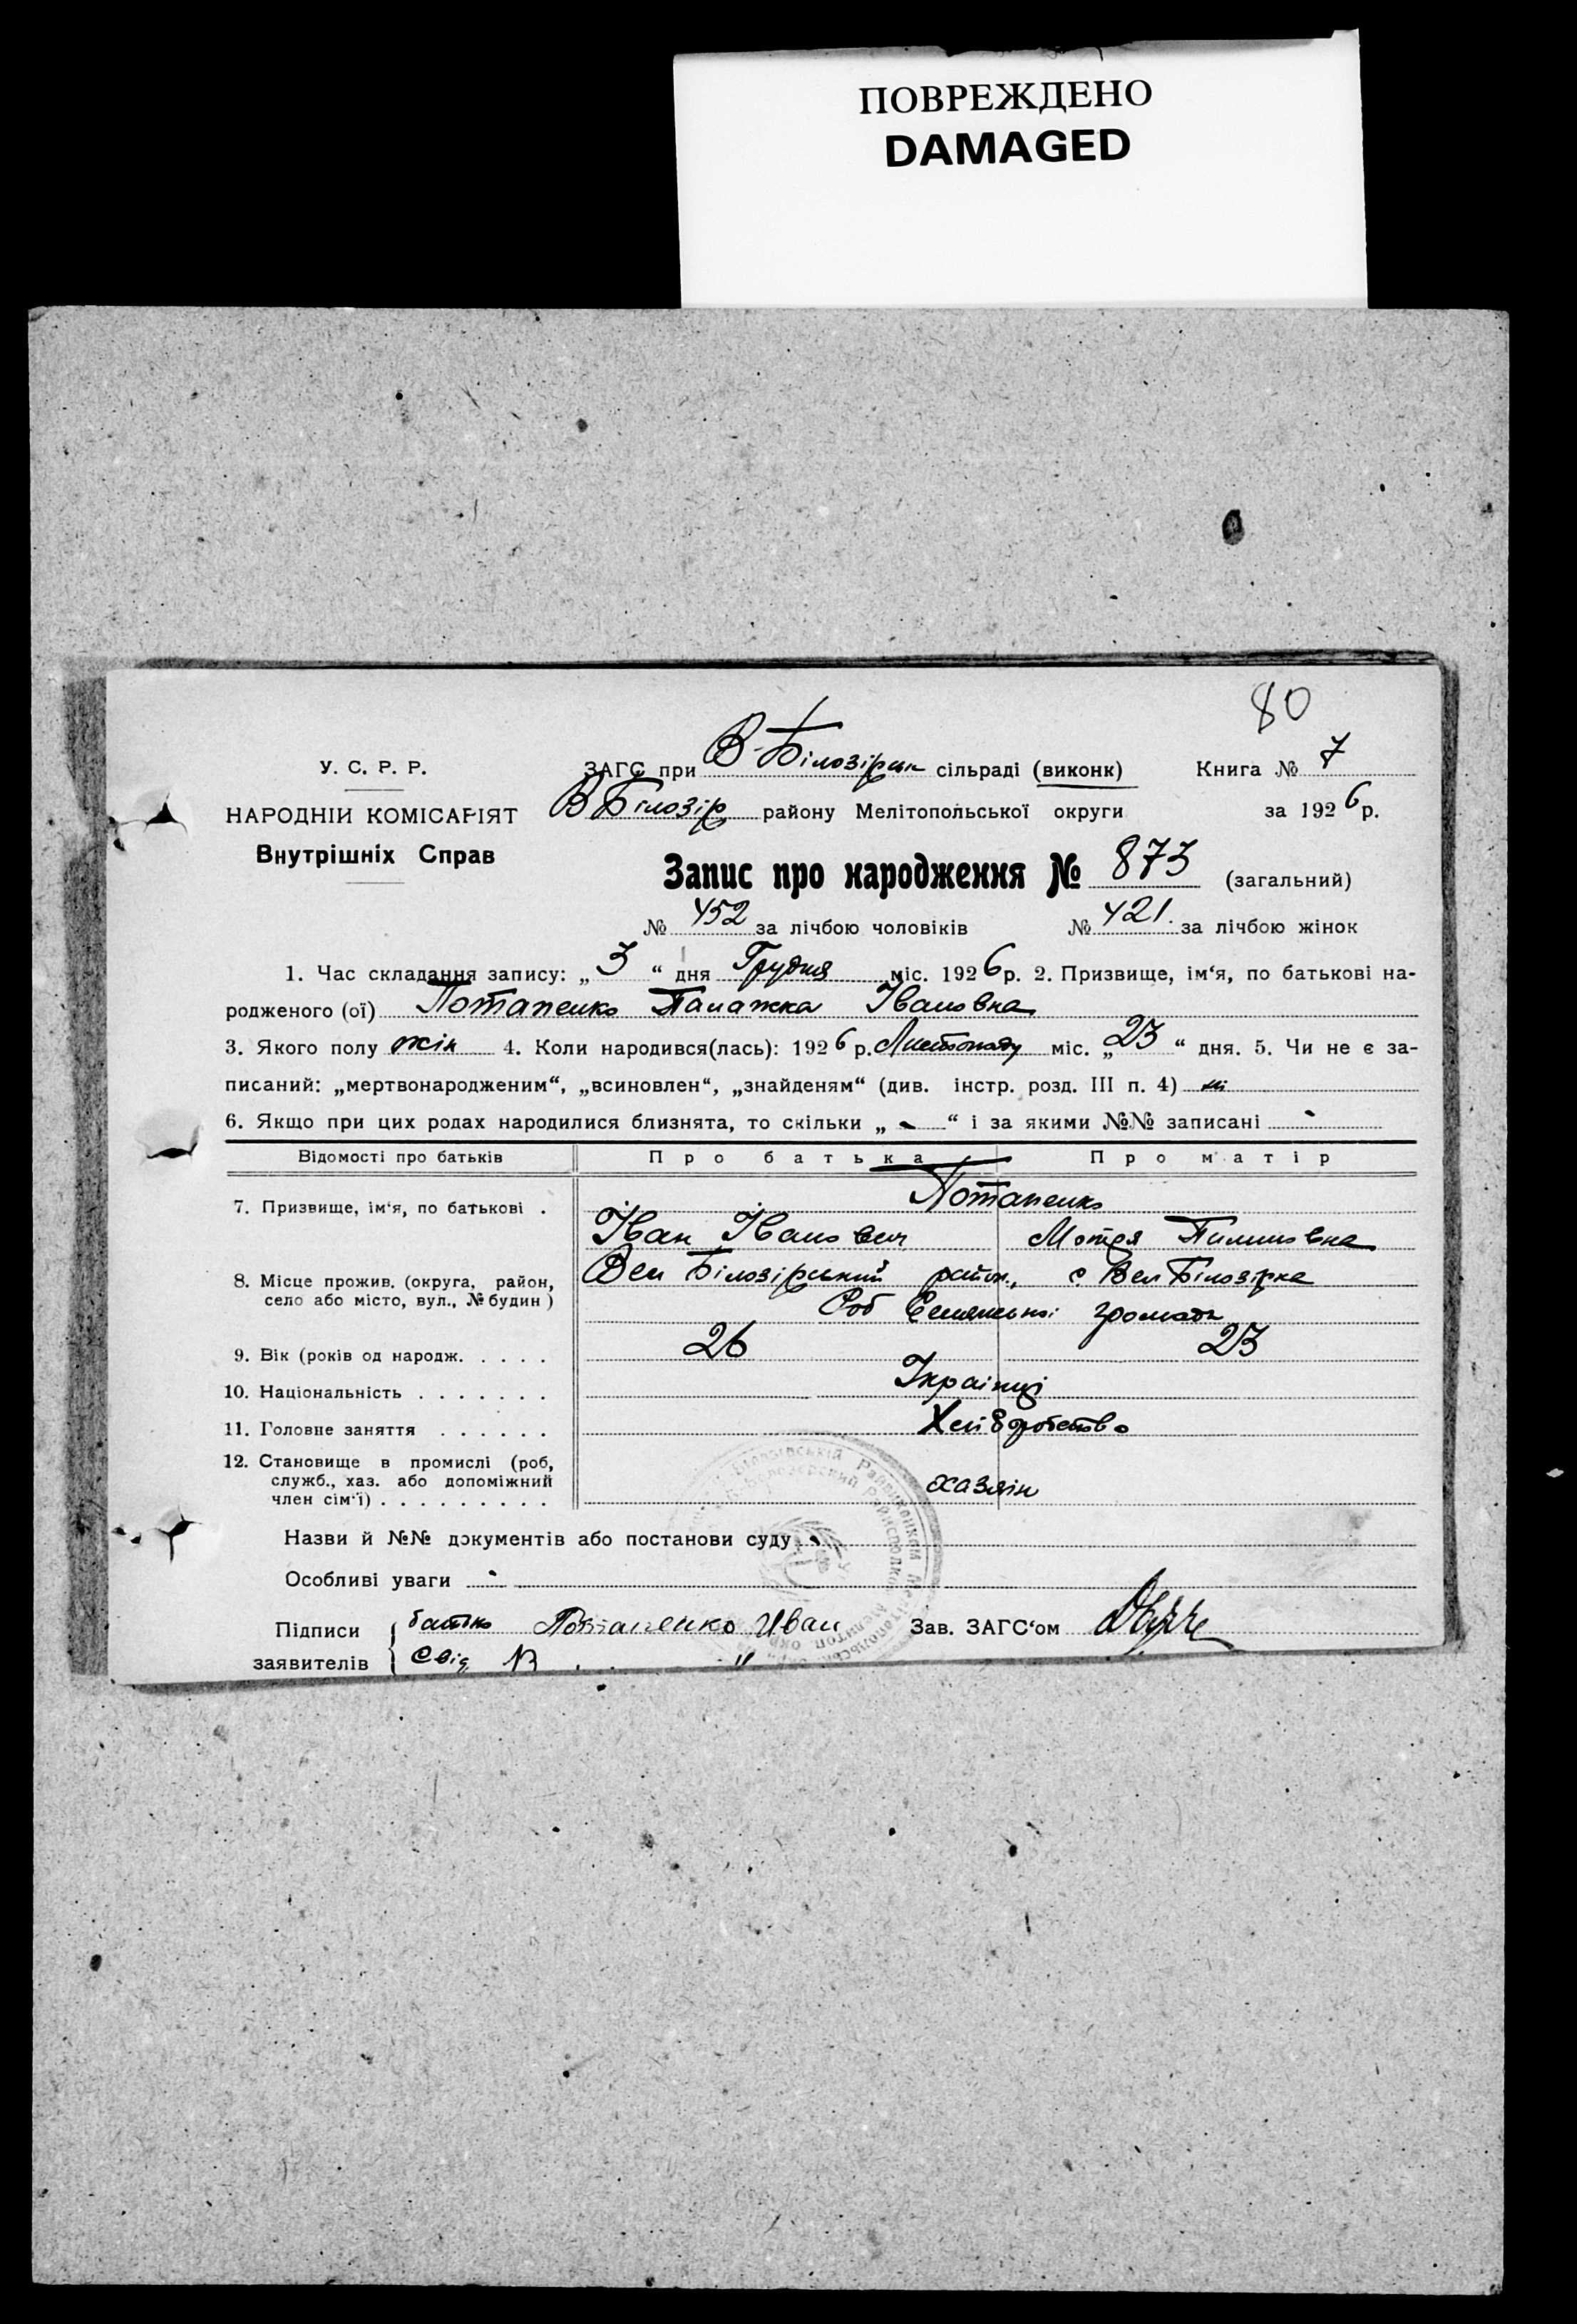 ПОВРЕЖДЕНО
DAMAGED
80
У. С. Р. Р.
ЗАГС при В-Білозірськ сільраді (виконк) Книга № 7
НАРОДНІЙ КОМІСАРІЯТ
В Білозір району Мелітопольської округи за 1926 р.
Внутрішніх Справ
Запис про народження № 873 (загальний)
№ 452 за лічбою чоловіків № 421. за лічбою жінок
1. Час складання запису: „ 3 “ дня Грудня міс. 1926 р. 2. Призвище, ім‘я, по батькові на-
родженого (ої) Потапенко Палажка Івановна
3. Якого полу жін 4. Коли народився(лась): 1926 р. Листопаду міс. „ 23 “ дня. 5. Чи не є за-
писаний: „мертвонародженим“, „всиновлен“, „знайденям“ (див. інстр. розд. III п. 4) ні
6. Якщо при цих родах народилися близнята, то скільки „ - “ і за якими №№ записані -
Відомості про батьків Про батька Про матір
7. Призвище, ім‘я, по батькові . Потапенко
Іван Іванович Мотря Пилиповна
8. Місце прожив. (округа, район,
село або місто, вул., № будин )
Вел Білозірський район., с Вел Білозірка
громади
9. Вік (років од народж. . . . . 26 23
10. Національність . . . . . . . Українці
11. Головне заняття . . . . . . Хліборобство
12. Становище в промислі (роб,
служб., хаз. або допоміжний
член сім‘ї) . . . . . . . . . хазяін
Назви й №№ документів або постанови суду -
Особливі уваги -
Підписи батько Потапенко Иван Зав. ЗАГС‘ом
заявителів Свід